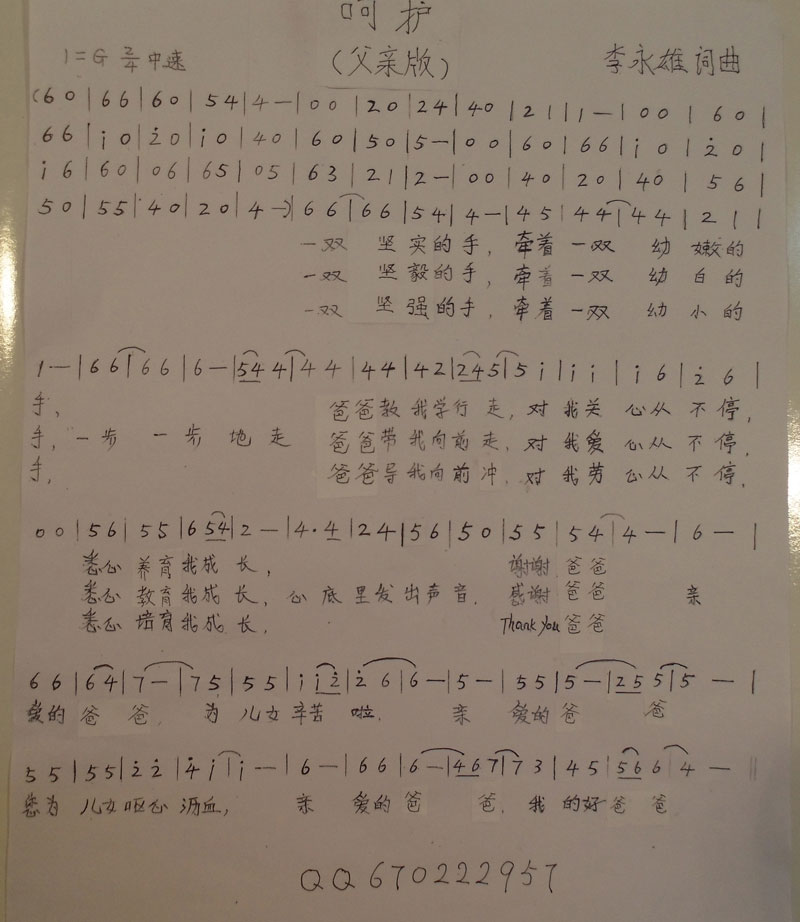 呵护
1=G 2/4 中速 (父亲版) 李永雄 词曲
(6 0 | 6 6 | 6 0 | 5 4 | 4 — | 0 0 | 2 0 | 2 4 | 4 0 | 2 1 | 1 — | 0 0 | 6 0 |
6 6 | i 0 | 2̇ 0 | i 0 | 4 0 | 6 0 | 5 0 | 5 — | 0 0 | 6 0 | 6 6 | i 0 | 2̇ 0 |
i 6 | 6 0 | 0 6 | 6 5 | 0 5 | 6 3 | 2 1 | 2 — | 0 0 | 4 0 | 2 0 | 4 0 | 5 6 |
5 0 | 5 5 | 4 0 | 2 0 | 4 —) | 6 6 | 6 6 | 5 4 | 4 — | 4 5 | 4 4 | 4 4 | 2 1 |
一双 坚实的手, 牵着一双 幼嫩的
一双 坚毅的手, 牵着一双 幼白的
一双 坚强的手, 牵着一双 幼小的
1 — | 6 6 | 6 6 | 6 — | 5 4 4 | 4 4 | 4 4 | 4 2 | 2 4 5 | 5 i | i i | i 6 | 2̇ 6 |
手, 爸爸教我学行走, 对我关心从不停,
手, 一步一步地走 爸爸带我向前走, 对我爱心从不停,
手, 爸爸导我向前冲, 对我劳心从不停,
0 0 | 5 6 | 5 5 | 6 5 4 | 2 — | 4 · 4 | 2 4 | 5 6 | 5 0 | 5 5 | 5 4 | 4 — | 6 — |
悉心养育我成长, 谢谢爸爸
悉心教育我成长, 心底里发出声音. 感谢爸爸 亲
悉心培育我成长, Thank you 爸爸
6 6 | 6 4 | 7 — | 7 5 | 5 5 | i i 2̇ | 2̇ 6 | 6 — | 5 — | 5 5 | 5 — | 2 5 5 | 5 — |
爱的爸爸, 为儿女辛苦啦, 亲爱的爸爸
5 5 | 5 5 | 2̇ 2̇ | 4̇ i | i — | 6 — | 6 6 | 6 — | 4 6 7 | 7 3 | 4 5 | 5 6 6 | 4 — ||
您为儿女呕心沥血, 亲爱的爸爸, 我的好爸爸
QQ670222957